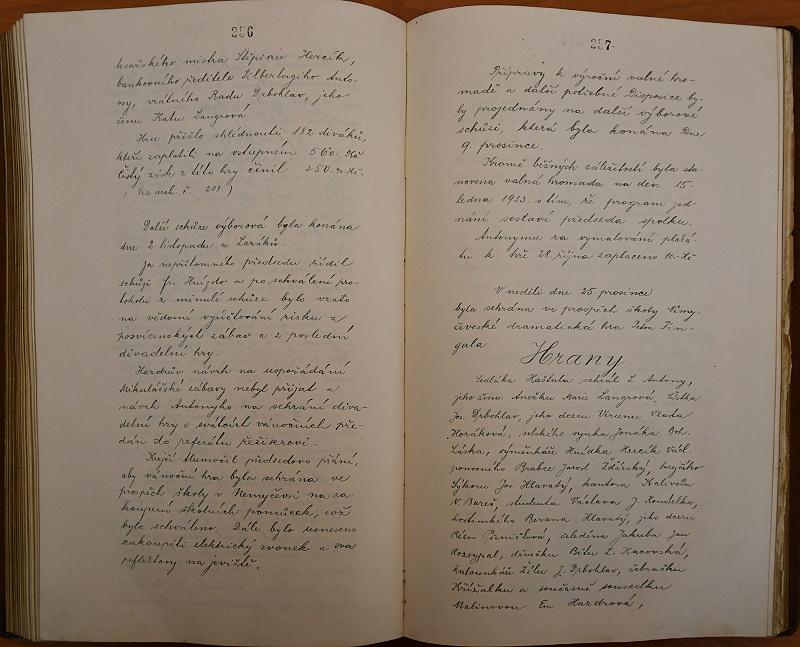 256
kařského mistra Štěpinu Hercík,
bankovního ředitele Silberlagiho Anto-
ny, vrátného Radu Drbohlav, jeho
ženu Katu Langrová.
Hru přišlo shlédnouti 182 diváků,
kteří zaplatili na vstupném 560.- Kč
Čistý zisk z této hry činil 250.90 Kč.
(Viz arch. č. 208.)
Další schůze výborová byla konána
dne 2. listopadu u Lazáků.
Za nepřítomného předsedu řídil
schůzi Fr. Hnízdo a po schválení pro-
tokolu z minulé schůze bylo vzato
na vědomí vyúčtování zisku z
posvícenských zábav a z poslední
divadelní hry.
Hazdrův návrh na uspořádání
Mikulášské zábavy nebyl přijat a
návrh Antonyho na sehrání diva-
delní hry o svátcích vánočních pře-
dán do referátu režiserovi.
Krejčí tlumočil předsedovo přání,
aby vánoční hra byla sehrána ve
prospěch školy v Němyčevsi na za-
koupení školních pomůcek, což
bylo schváleno. Dále bylo usneseno
zakoupiti elektrický zvonek a dva
reflektory na jeviště.
257
Přípravy k výroční valné hro-
madě a další potřebné disposice by-
ly projednány na další výborové
schůzi, která byla konána dne
9. prosince.
Kromě běžných záležitostí byla sta-
novena valná hromada na den 15.
ledna 1933 s tím, že program jed-
nání sestaví předseda spolku.
Antonymu za vymalování plaká-
tu k hře 28. října zaplaceno 10.- Kč
V neděli dne 25. prosince
byla sehrána ve prospěch školy Němy-
čeveské dramatická hra Petra Fin-
gala
Hrany.
Sedláka Haštala sehrál L. Antony,
jeho ženu Anežku Marie Langrová, Lístka
Jos. Drbohlav, jeho dceru Verunu Vlasta
Horáková, selského synka Jonáka Boh.
Láska, výměnkáře Hnídka Hercík Václ.
ponocného Brabce Jarosl. Žďárský, krejčího
Sýkoru Jos. Hlavatý, kantora Kalivodu
V. Bareš, studenta Václava J. Koudelka,
hostinského Berana Hlavatý, jeho dceru
Rézu Pízničlová, čeledína Jakuba Jan
Rozsypal, děvečku Bětu L. Kacovská,
kalounkáře Žílu J. Drbohlav, žebračku
Křížalku a současně sousedku
Malinovou Em. Hazdrová,